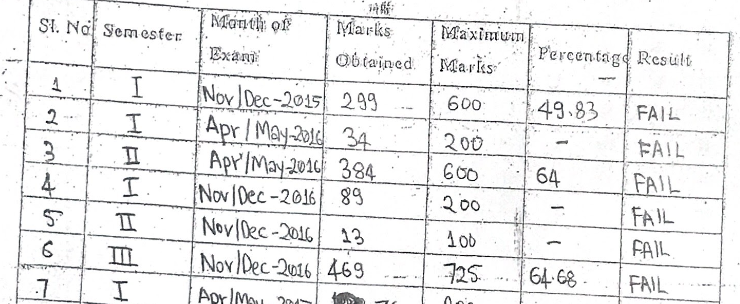 Sl. No Semester Month of Exam Marks Obtained Maximum Marks Percentage Result
1 I Nov/Dec-2015 299 600 49.83 FAIL
2 I Apr/May-2016 34 200 - FAIL
3 II Apr/May-2016 384 600 64 FAIL
4 I Nov/Dec-2016 89 200 - FAIL
5 II Nov/Dec-2016 13 100 - FAIL
6 III Nov/Dec-2016 469 725 64.68 FAIL
7 I Apr/May